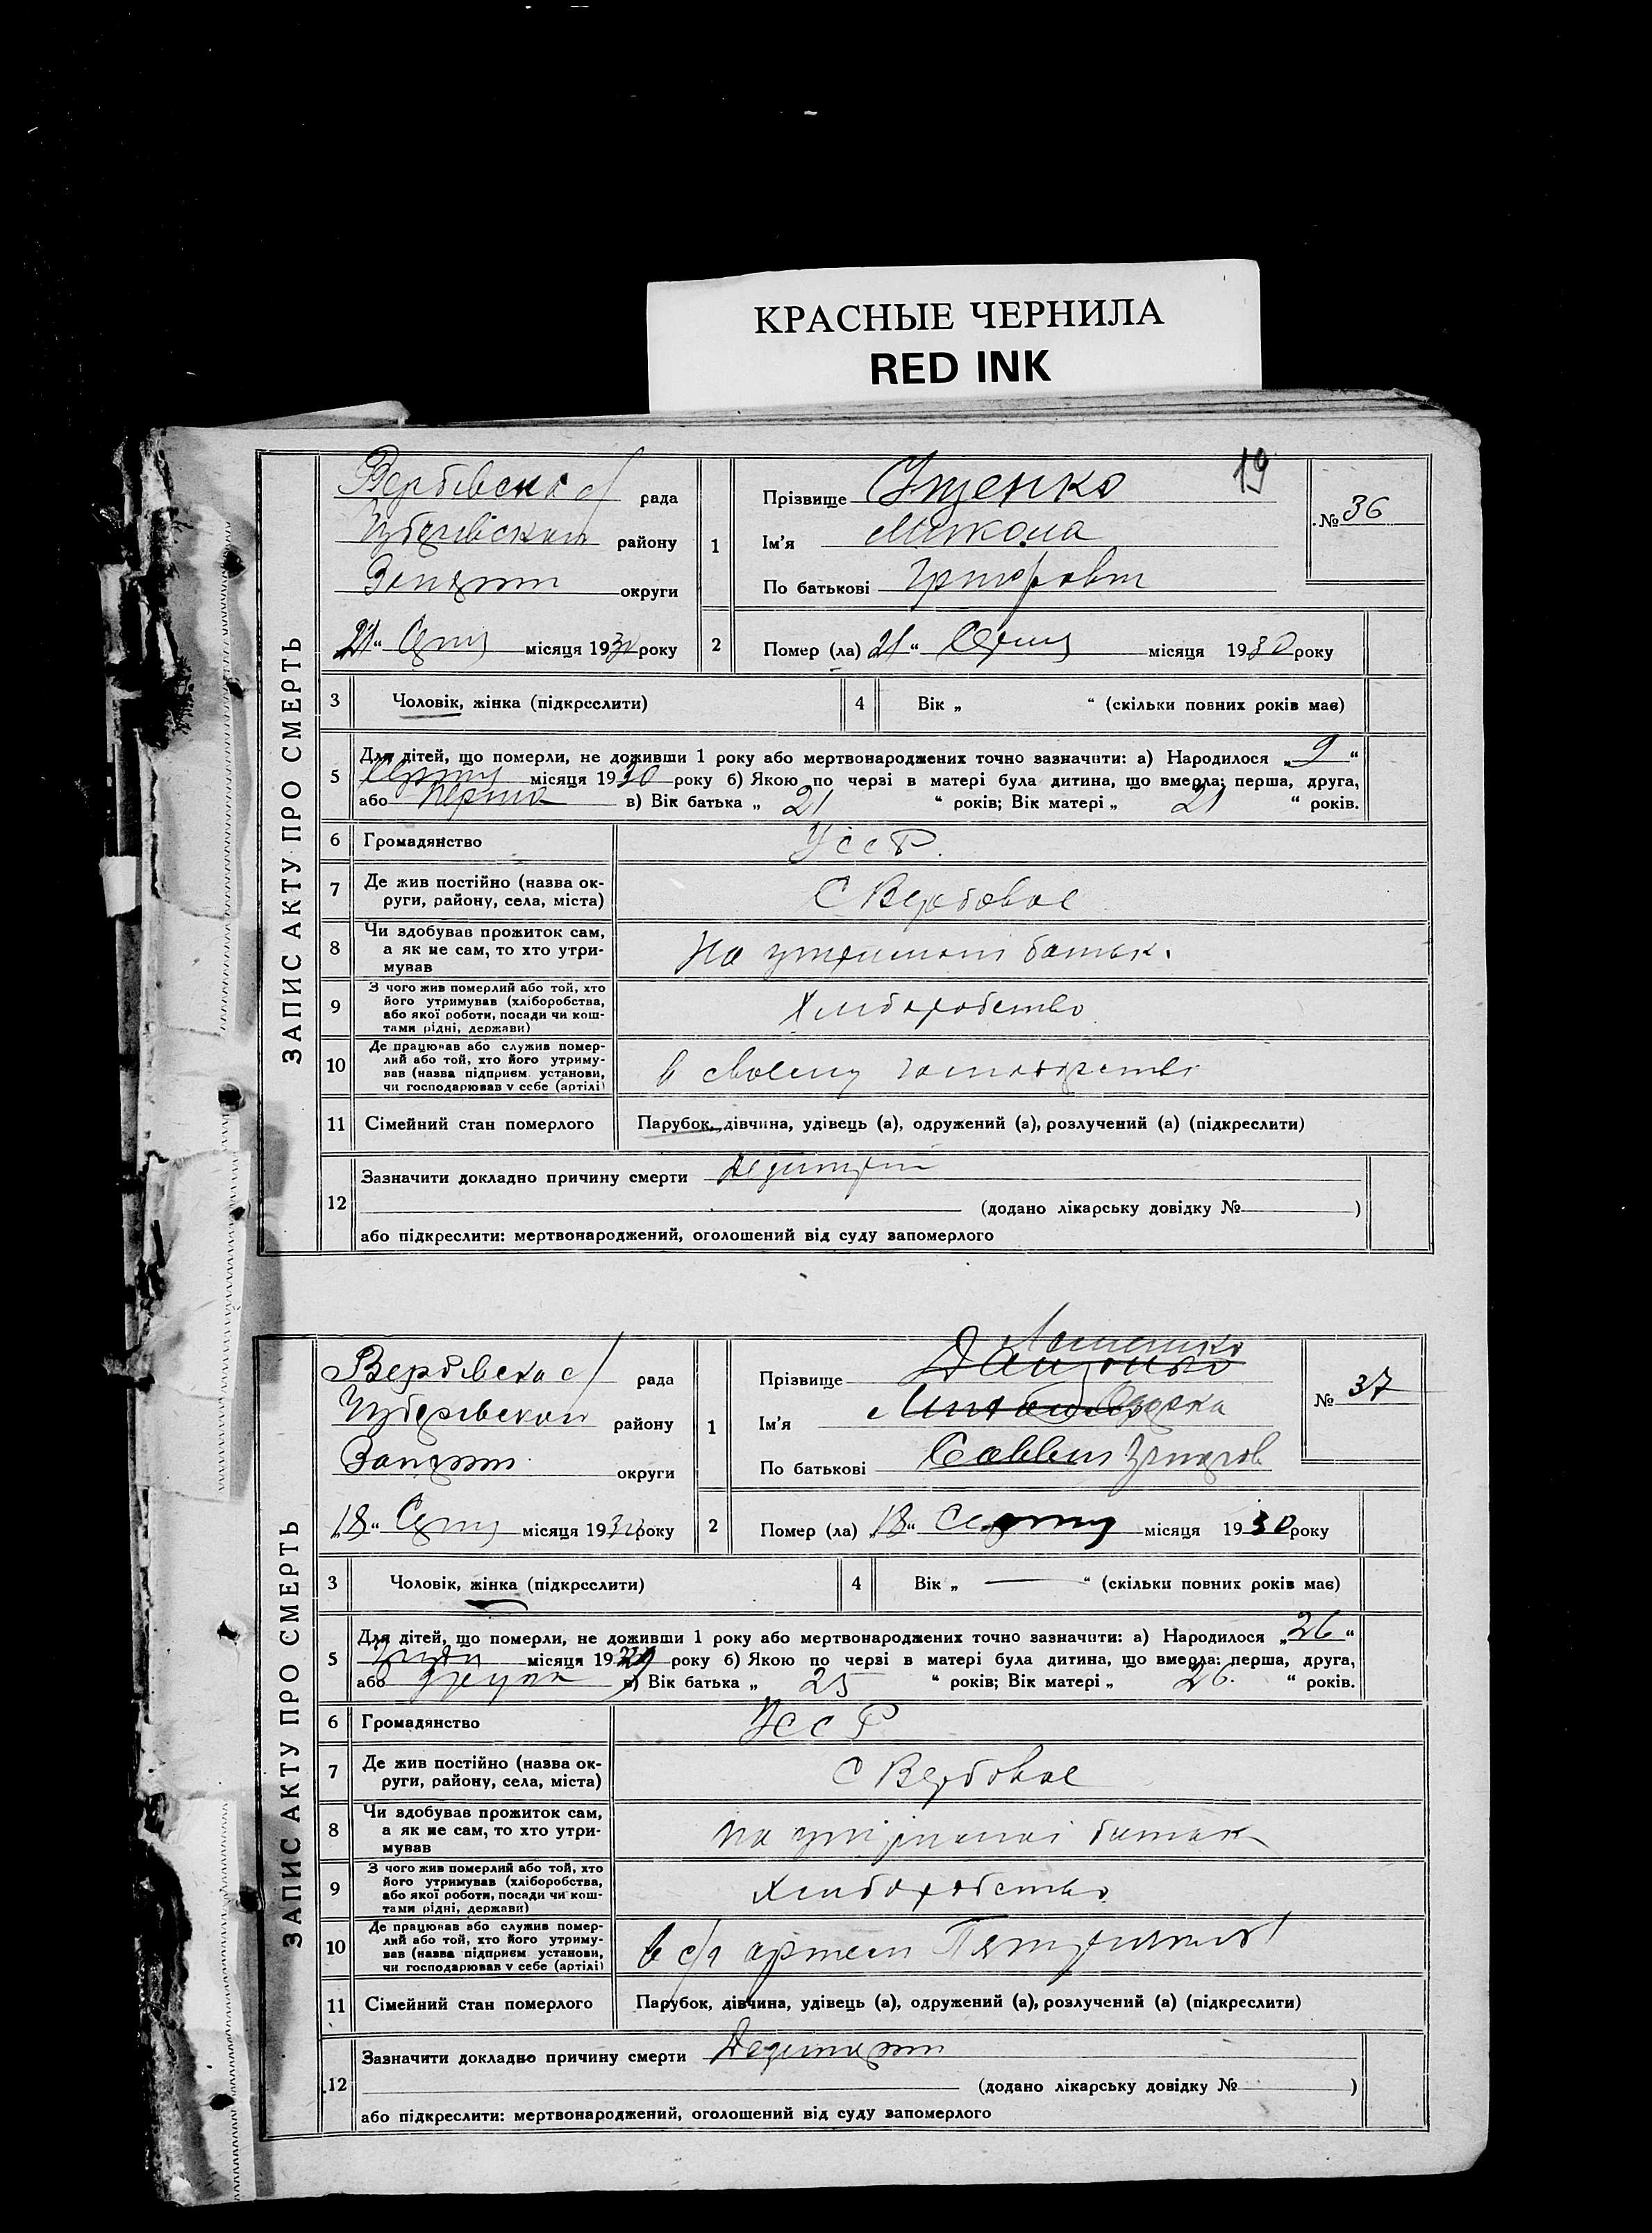 КРАСНЫЕ ЧЕРНИЛА
RED INK
19
ЗАПИС АКТУ ПРО СМЕРТЬ
Вербівська с/ рада
району
округи
1
Прізвище Іщенко
Ім'я Микола
По батькові
№ 36
21" Серп місяця 1930 року
2
Помер (ла) 21" Серп місяця 1930 року
3 Чоловік, жінка (підкреслити)
4 Вік „ “ (скільки повних років має)
5 Для дітей, що померли, не доживши 1 року або мертвонароджених точно зазначити: а) Народилося „ 9 “
Серпня місяця 1930 року б) Якою по черзі в матері була дитина, що вмерла: перша, друга,
або перша в) Вік батька „ 21 “ років; Вік матері „ 21 “ років.
6 Громадянство УССР.
7 Де жив постійно (назва ок-
руги, району, села, міста)
С Вербовое
8 Чи здобував прожиток сам,
а як не сам, то хто утри-
мував
На утримані батьк.
9 З чого жив померлий або той, хто
його утримував (хліборобства,
або якої роботи, посади чи кош-
тами рідні, держави)
Хліборобство
10 Де працював або служив помер-
лий або той, хто його утриму-
вав (назва підприєм. установи,
чи господарював у себе (артілі)
в своему господарстві
11 Сімейний стан померлого Парубок, дівчина, удівець (а), одружений (а), розлучений (а) (підкреслити)
12 Зазначити докладно причину смерти
(додано лікарську довідку № )
або підкреслити: мертвонароджений, оголошений від суду запомерлого
ЗАПИС АКТУ ПРО СМЕРТЬ
Вербівська с/ рада
району
округи
1
Прізвище
Ім'я
По батькові
№ 37
18" Серп місяця 1930 року
2
Помер (ла) 18" Серпня місяця 1930 року
3 Чоловік, жінка (підкреслити)
4 Вік „ — “ (скільки повних років має)
5 Для дітей, що померли, не доживши 1 року або мертвонароджених точно зазначити: а) Народилося „ 26 “
місяця 1929 року б) Якою по черзі в матері була дитина, що вмерла: перша, друга,
або друга в) Вік батька „ 25 “ років; Вік матері „ 26. “ років.
6 Громадянство УССР
7 Де жив постійно (назва ок-
руги, району, села, міста)
С Вербовое
8 Чи здобував прожиток сам,
а як не сам, то хто утри-
мував
На утримані батьк
9 З чого жив померлий або той, хто
його утримував (хліборобства,
або якої роботи, посади чи кош-
тами рідні, держави)
Хліборобство
10 Де працював або служив помер-
лий або той, хто його утриму-
вав (назва підприєм. установи,
чи господарював у себе (артілі)
в с/г артели
11 Сімейний стан померлого Парубок, дівчина, удівець (а), одружений (а), розлучений (а) (підкреслити)
12 Зазначити докладно причину смерти
(додано лікарську довідку № )
або підкреслити: мертвонароджений, оголошений від суду запомерлого